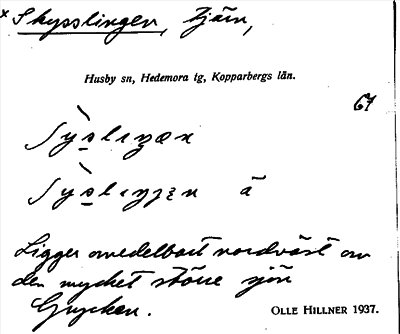 × Skysslingen, Tjärn,
Husby sn, Hedemora tg, Kopparbergs län.
67
Ligger omedelbart nordväst om
den mycket större sjön
Grycken.
OLLE HILLNER 1937.